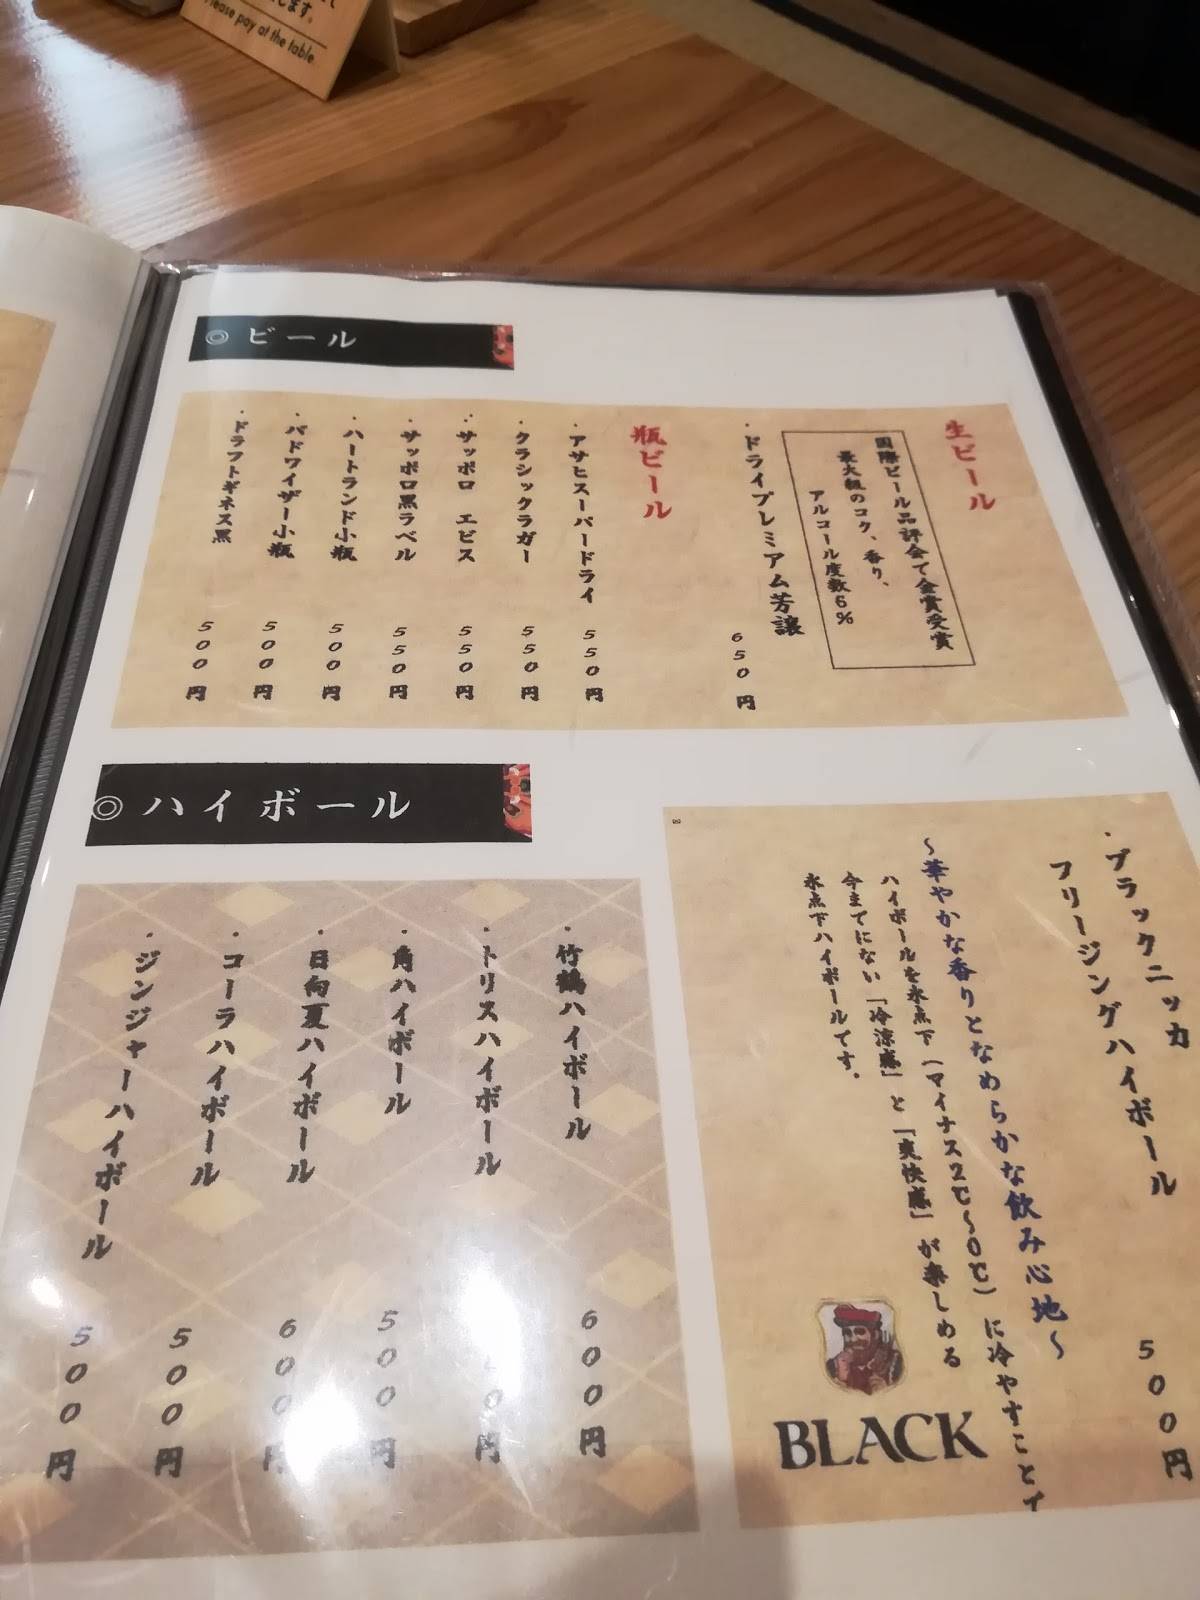 します。
Please pay at the table
◎ ビール
生ビール
国際ビール品評会で金賞受賞
最大瓶のコク、香り、
アルコール度数6%
・ドライプレミアム芳譲 650円
瓶ビール
・アサヒスーパードライ 550円
・クラシックラガー 550円
・サッポロ エビス 550円
・サッポロ黒ラベル 550円
・ハートランド小瓶 500円
・バドワイザー小瓶 500円
・ドラフトギネス黒 500円
◎ ハイボール
・ブラックニッカ
フリージングハイボール 500円
～華やかな香りとなめらかな飲み心地～
ハイボールを氷点下(マイナス2℃～0℃)に冷やすことで
今までにない「冷涼感」と「爽快感」が楽しめる
氷点下ハイボールです。
BLACK
・竹鶴ハイボール 600円
・トリスハイボール 00円
・角ハイボール 500円
・日向夏ハイボール 600円
・コーラハイボール 500円
・ジンジャーハイボール 500円